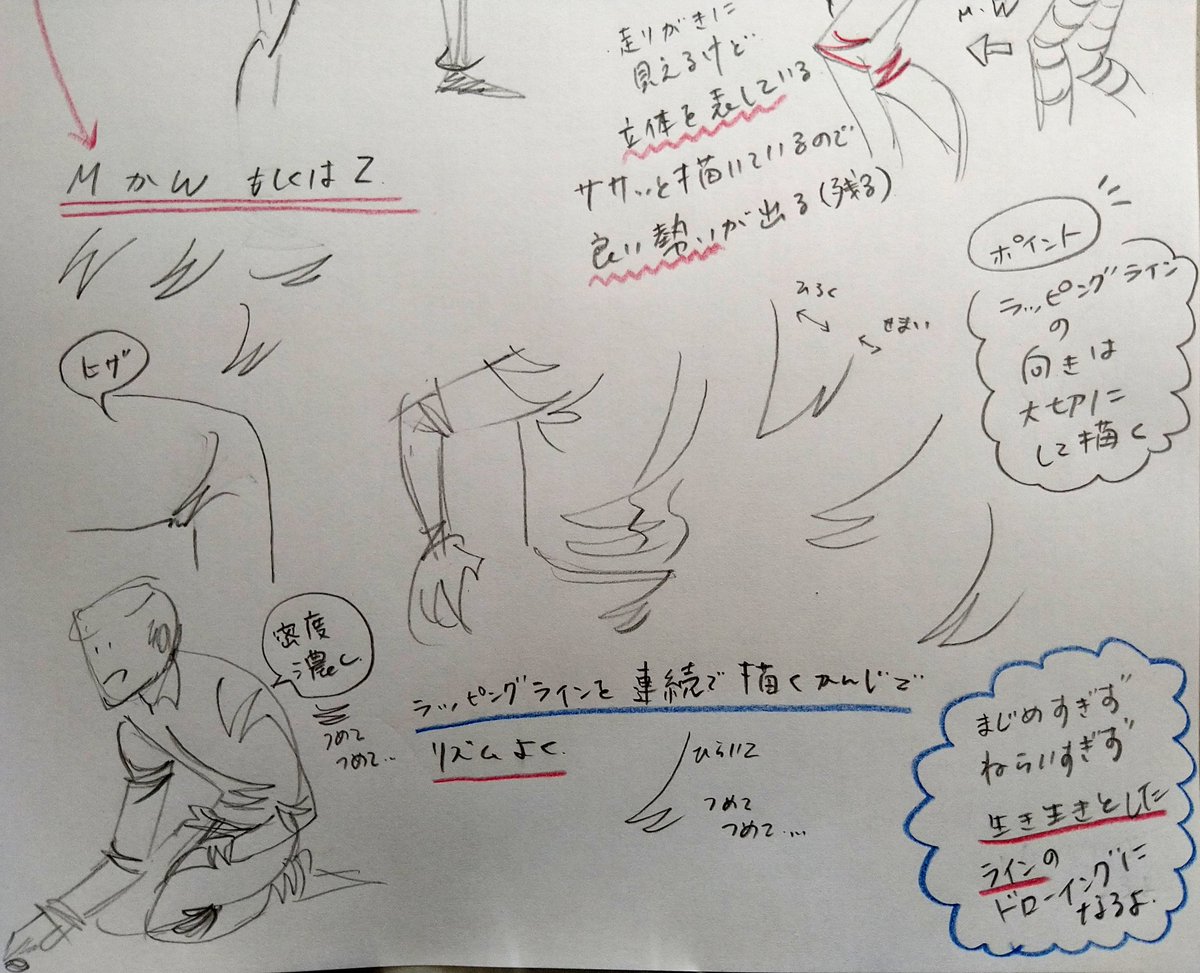 走りがきに
見えるけど
立体を表している
ササッと描いているので
良い勢いが出る(残る)
M・W
MかW もしくはZ
ポイント
ラッピングライン
の
向きは
大切に
して描く
ひろく
せまい
ヒザ
密度
濃く
つめて
つめて…
ラッピングラインを連続で描くかんじで
リズムよく
ひらいて
つめて
つめて…
まじめすぎず
ねらいすぎず
生き生きとした
ラインの
ドローイングに
なるよ.